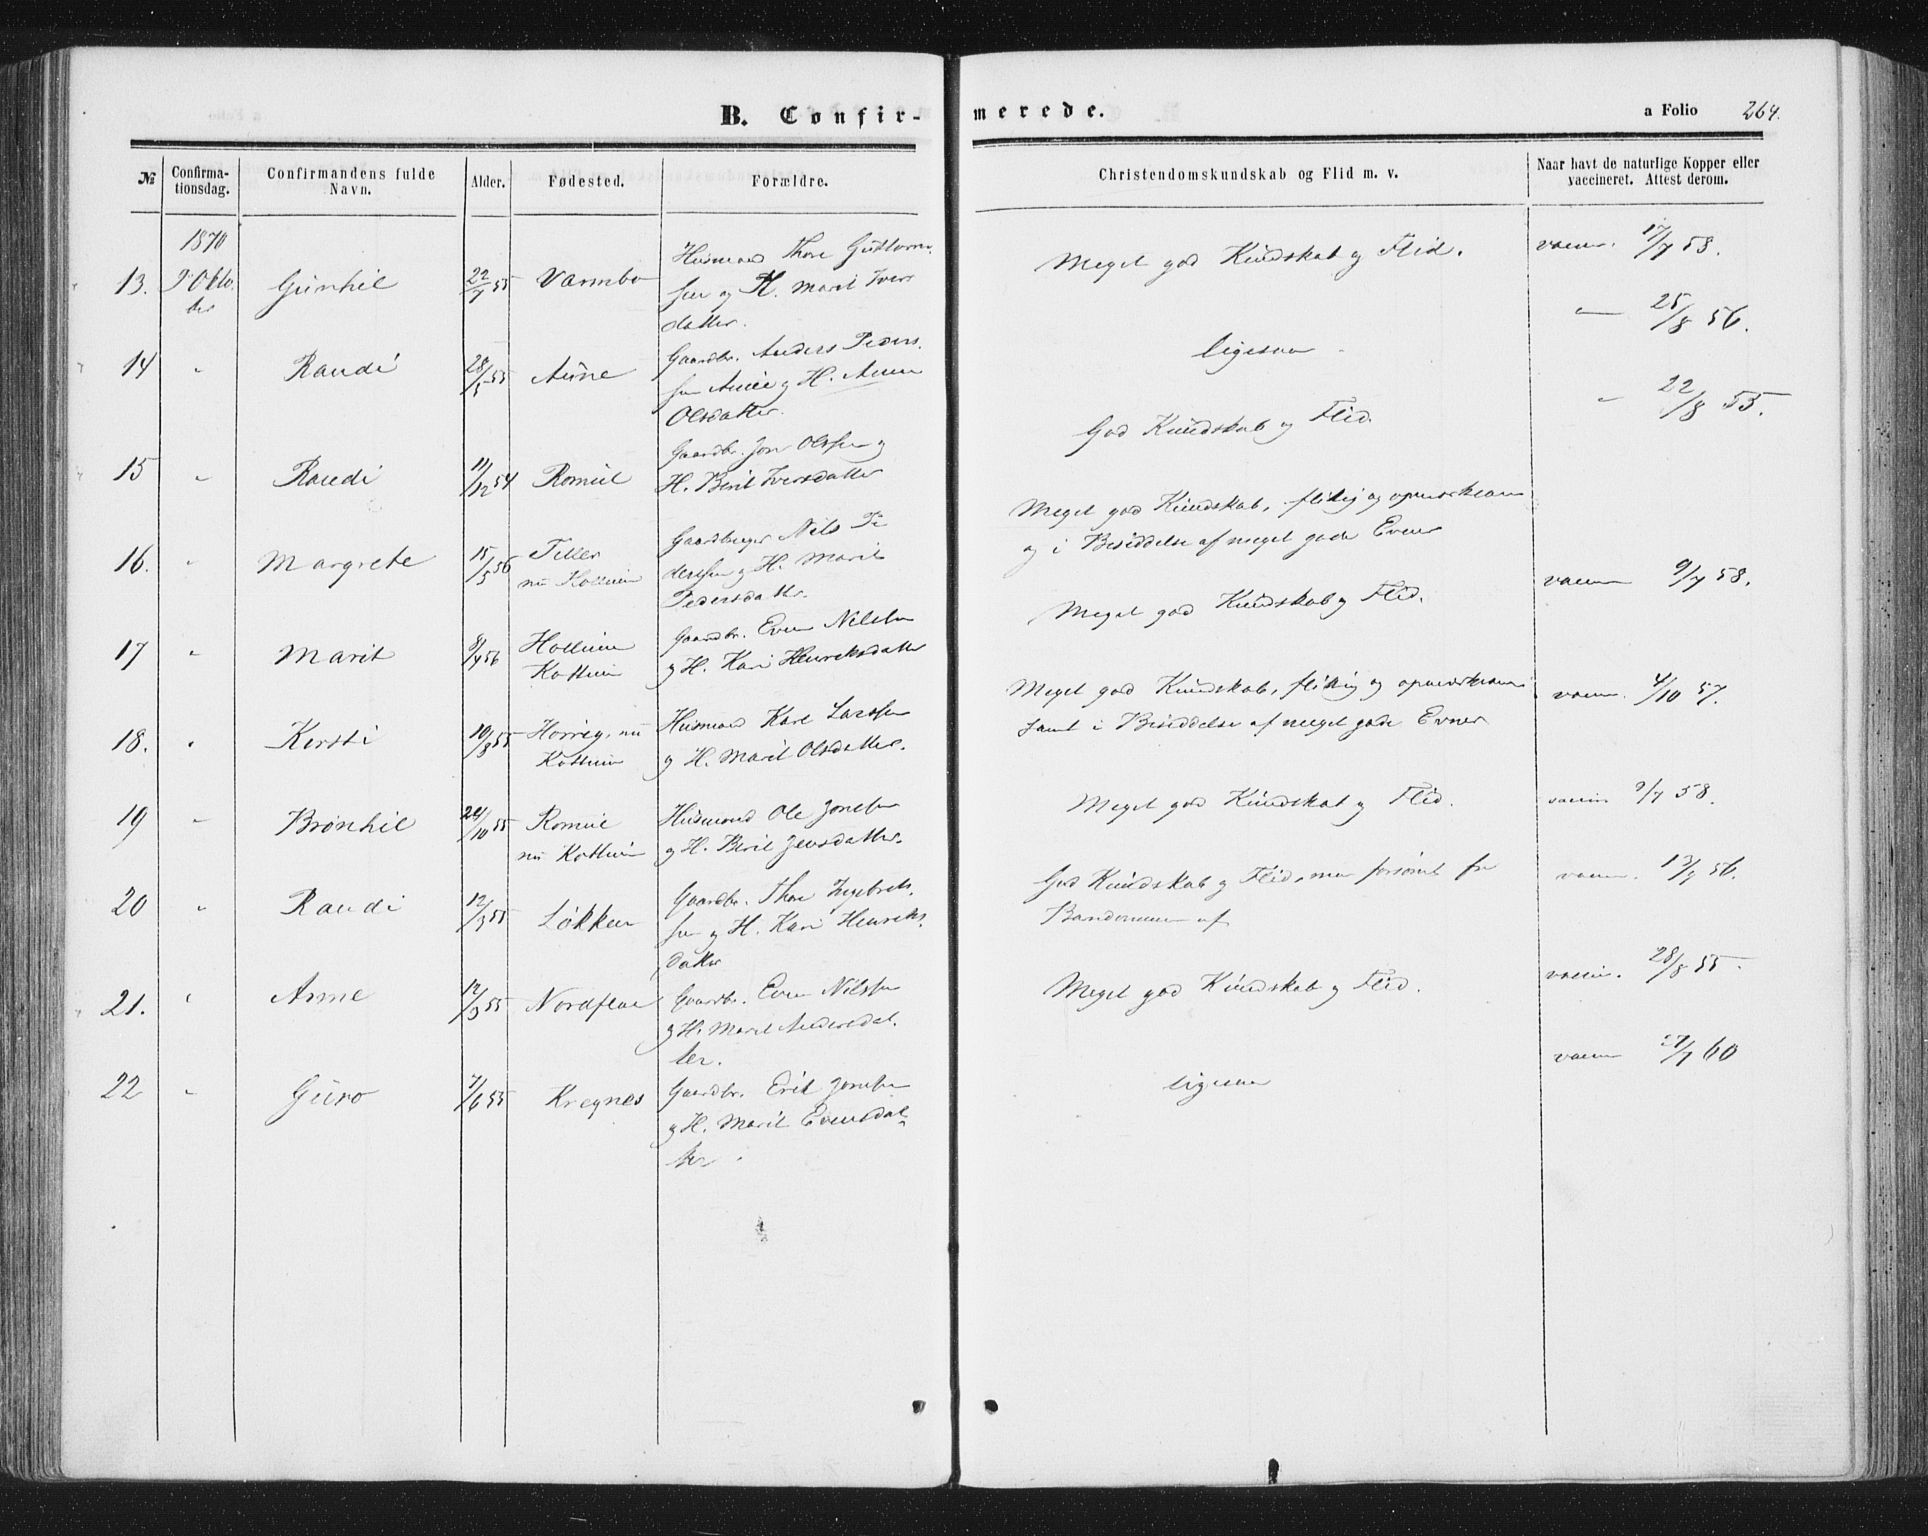 B. Confir-
merede.
a Folio 264.
№
Confirma-
tionsdag.
Confirmandens fulde
Navn.
Alder.
Fødested.
Forældre.
Christendomskundskab og Flid m. v.
Naar havt de naturlige Kopper eller
vaccineret. Attest derom.
1870
13. Gunhil 22/7 55 Varmbo
Husmand Thore Guttorm.
sen og H. Marit Ivers
datter.
Meget god Kundskab og Flid.
vaccin. 17/7 58.
14 " Randi 28/5 55 Aune
Gaardbr. Anders Peders.
sen Aune og H. Anne
Olsdatter.
ligesaa
" 25/8 56.
15 " Randi 11/12 54 Romul
Gaardbr. Jon Olssen og
H. Berit Iversdatter
God Kundskab og Flid.
" 22/8 55.
16. " Margrete 15/5 56 Tiller
nu Kottum
Gaardbruger Nils Pe
dersen og H. Marit
Pedersdatter.
Meget god Kundskab, flittig og opmærksom
og i Besiddelse af meget gode Evner
vaccin 9/7 58.
17 " Marit 8/4 56
Gaardbr. Even Nilsen
og H. Kari Henriksdatter
Meget god Kundskab og Flid.
vaccin. 4/10 57.
18. " Kirsti 10/8 55
Kottum
Husmand Karl Larssen
og H. Marit Olsdatter.
Meget god Kundskab, flittig og opmærksom
samt i Besiddelse af meget gode Evner
19 " Brønhil 24/10 55 Romul
nu Kottum
Husmand Ole Jonsen
og H. Berit Jensdatter.
Meget god Kundskab og Flid.
vaccin 9/7 58.
20 " Randi 12/3 55 Løkken
Gaardbr. Thore Ingebrits.
sen og H. Kari Henriks.
datter
God Kundskab og Flid, men forsømt fra
Barndommen af
vaccin. 13/9 56.
21. " Anne 12/9 55 Nordflaa
Gaardbr. Even Nilssen
og H. Marit Andersdat.
ter.
Meget god Kundskab og Flid.
vaccin. 28/8 55.
22 " Guro 7/6 55 Kregnes
Gaardbr. Erik Jonsen
og H. Marit Evensdat-
ter.
ligesaa
vaccin 27/7 60